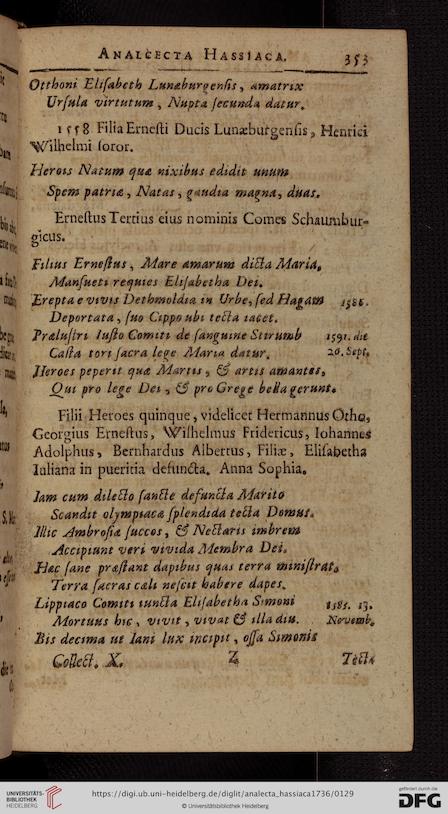 ANALECTA HASSIACA. 353
Otthoni Elisabeth Lunæburgensis, amatrix
Ursula virtutum, Nupta secunda datur.
1558 Filia Ernesti Ducis Lunæburgensis, Henrici
Wilhelmi soror.
Herois Natum quæ nixibus edidit unum
Spem patriæ, Natas, gaudia magna, duas.
Ernestus Tertius eius nominis Comes Schaumbur-
gicus.
Filius Ernestus, Mare amarum dicta Maria,
Mansueti requies Elisabetha Dei.
Erepta e vivis Dethmoldia in Urbe, sed Hagam 1586.
Deportata, suo Cippo ubi tecta iacet.
Prælustri Iusto Comiti de sanguine Stirumb 1591. die
Casta tori sacra lege Maria datur. 20. Sept.
Heroes peperit quæ Martis, & artis amantes,
Qui pro lege Dei, & pro Grege bella gerunt.
Filii Heroes quinque, videlicet Hermannus Otho,
Georgius Ernestus, Wilhelmus Fridericus, Iohannes
Adolphus, Bernhardus Albertus, Filiæ, Elisabetha
Iuliana in pueritia defuncta. Anna Sophia.
Iam cum dilecto sancte defuncta Marito
Scandit olympiacæ splendida tecta Domus.
Illic Ambrosiæ succos, & Nectaris imbrem
Accipiunt veri vivida Membra Dei.
Hæc sane præstant dapibus quas terra ministrat,
Terra sacras cæli nescit habere dapes.
Lippiaco Comiti iuncta Elisabetha Simoni 1585. 13.
Mortuus hic, vivit, vivat & illa diu. Novemb.
Bis decima ut Iani lux incipit, ossa Simonis
Collect. X. Z Tecta
UNIVERSITÄTS-
BIBLIOTHEK
HEIDELBERG
https://digi.ub.uni-heidelberg.de/diglit/analecta_hassiaca1736/0129
© Universitätsbibliothek Heidelberg
gefördert durch die
DFG